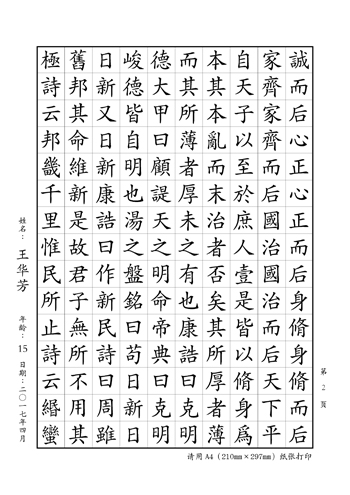 誠而后心正心正而后身脩身脩而后
家齊家齊而后國治國治而后天下平
自天子以至於庶人壹是皆以脩身爲
本其本亂而末治者否矣其所厚者薄
而其所薄者厚未之有也康誥曰克明
德大甲曰顧諟天之明命帝典曰克明
峻德皆自明也湯之盤銘曰苟日新日
日新又日新康誥曰作新民詩曰周雖
舊邦其命維新是故君子無所不用其
極詩云邦畿千里惟民所止詩云緡蠻
姓名：王华芳 年龄：15 日期：二〇一七年四月
第 2 页
请用 A4（210mm×297mm）纸张打印